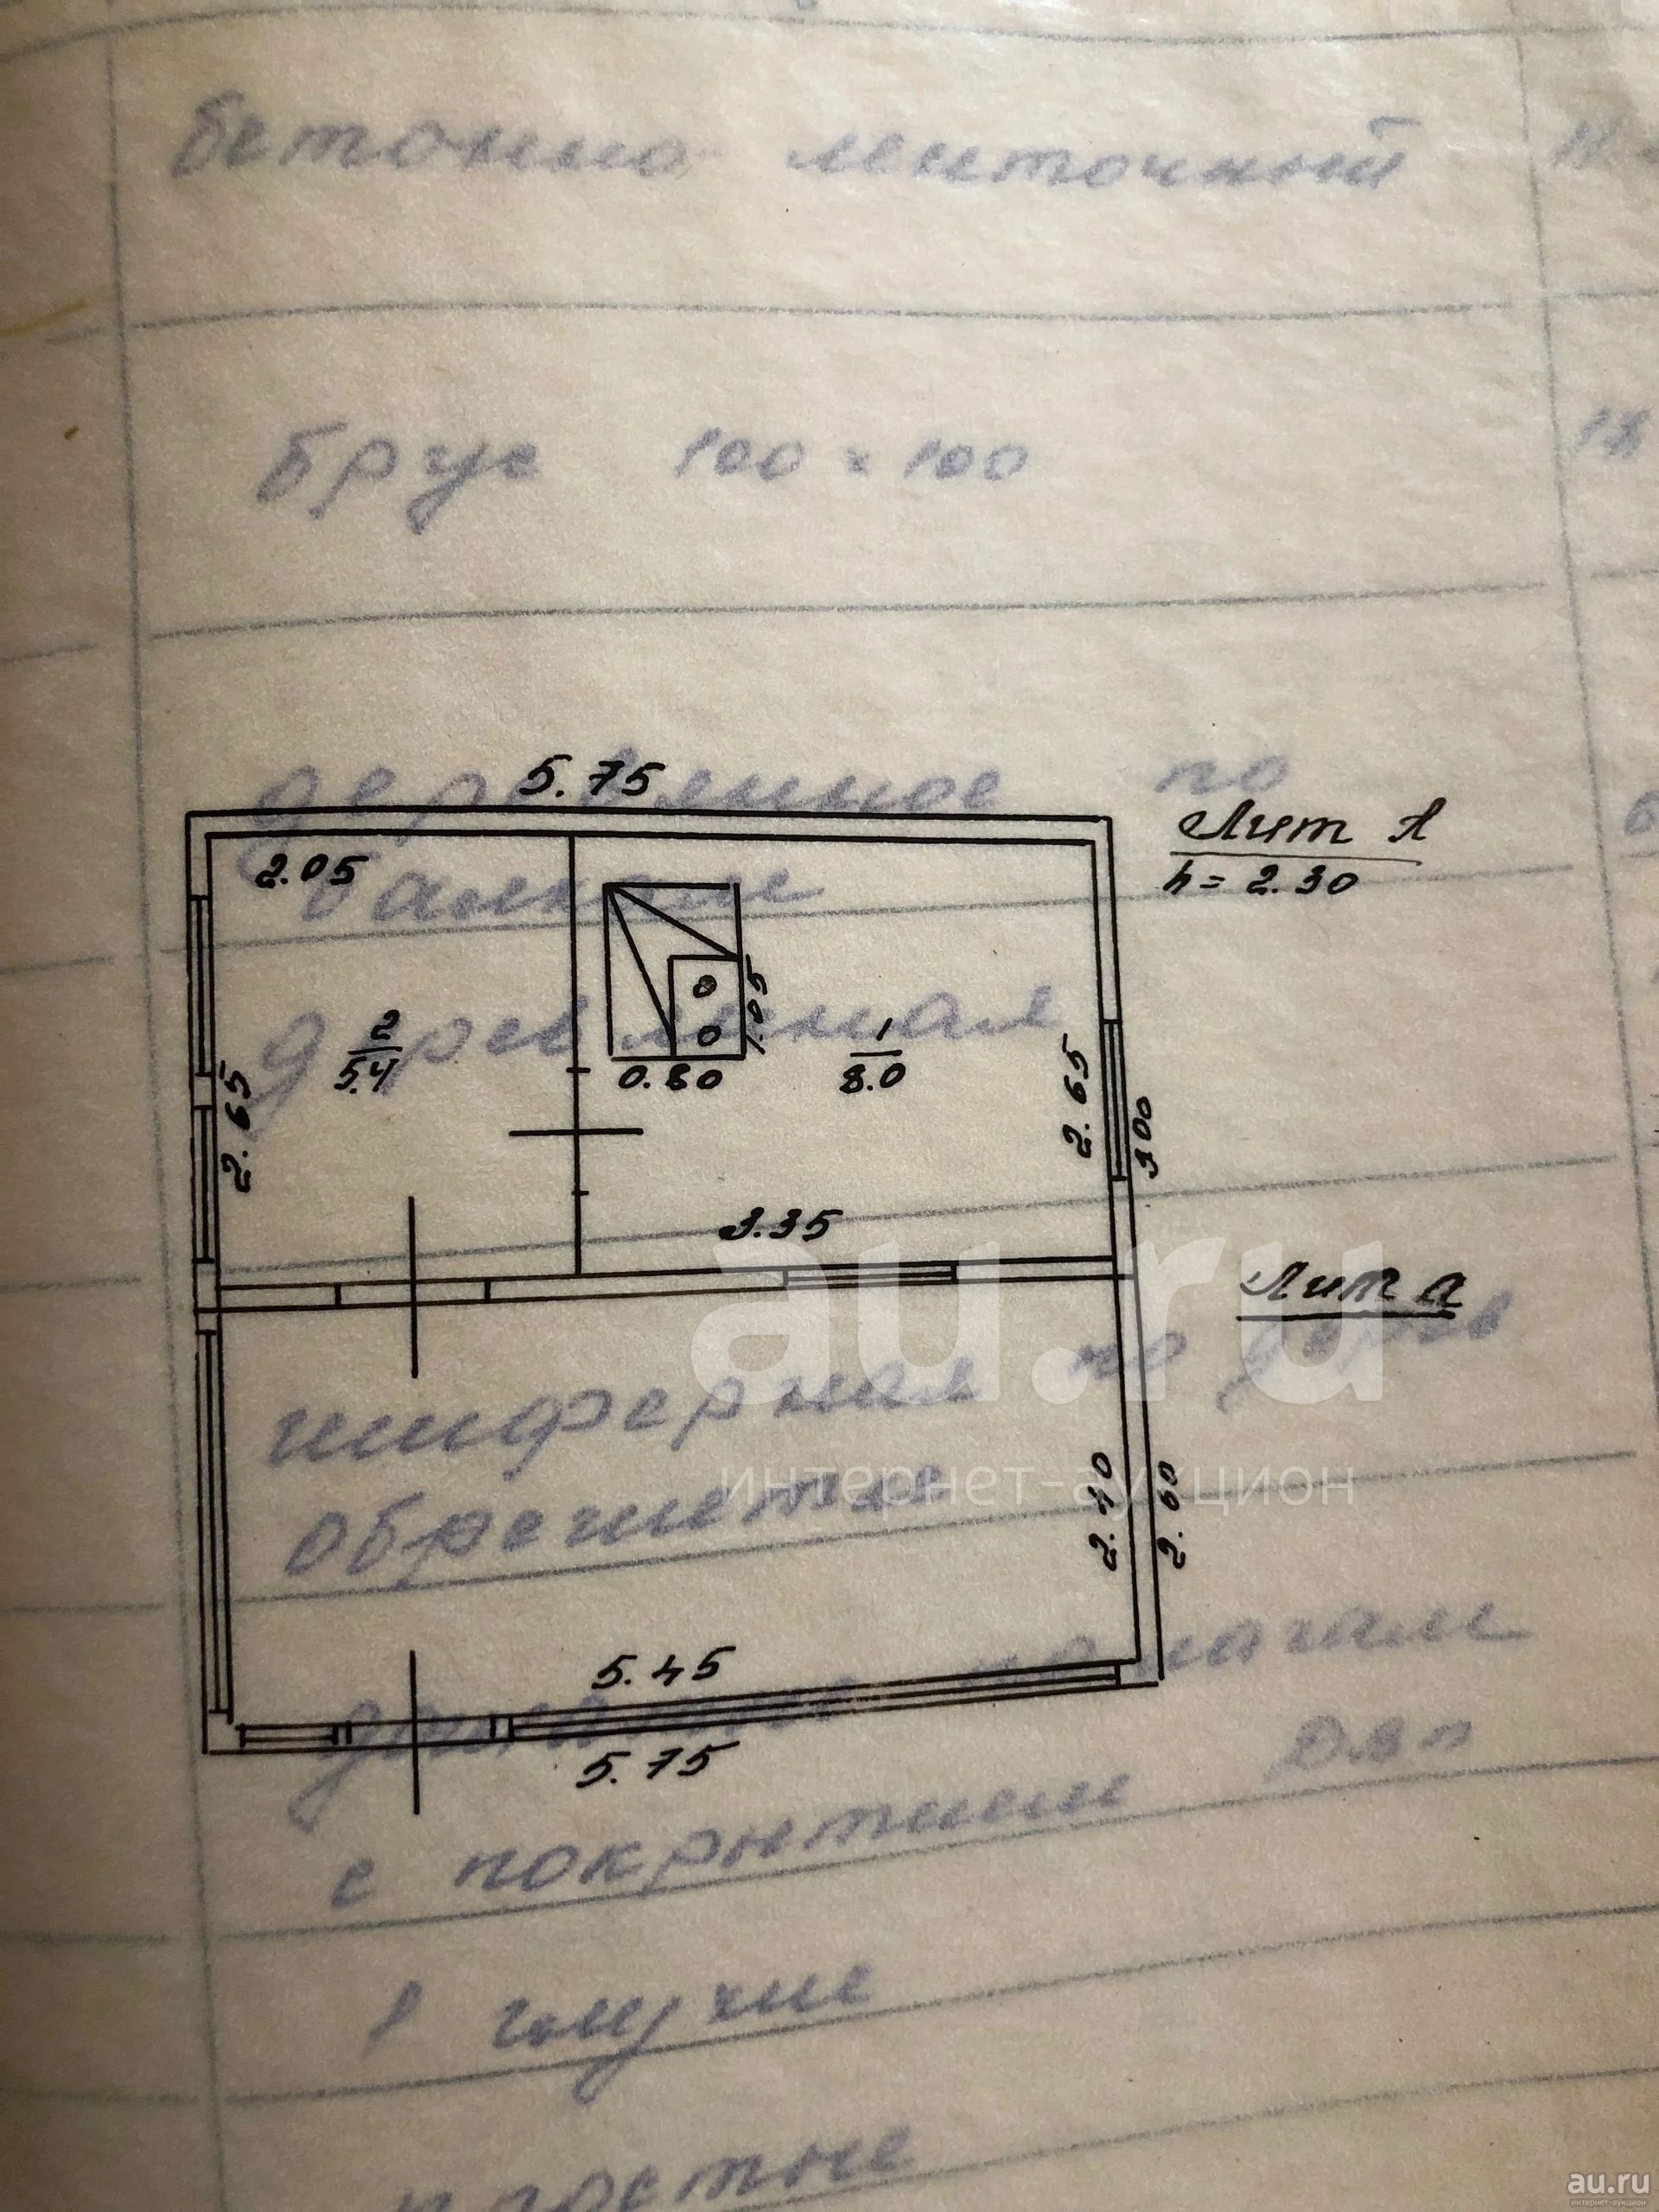 бетонно ленточный
брус 100 x 100
деревянное по
балкам
5.75
Лит А
h = 2.30
2.05
деревянная
1.05
2
5.4
0.80
1
8.0
2.65
2.65
300
3.35
au.ru
Лит а
шиферная по дерев
обрешетке
интернет-аукцион
2.40
2.60
5.45
5.75
дощатые по лагам
с покрытием ДВП
глухие
простые
au.ru
интернет-аукцион